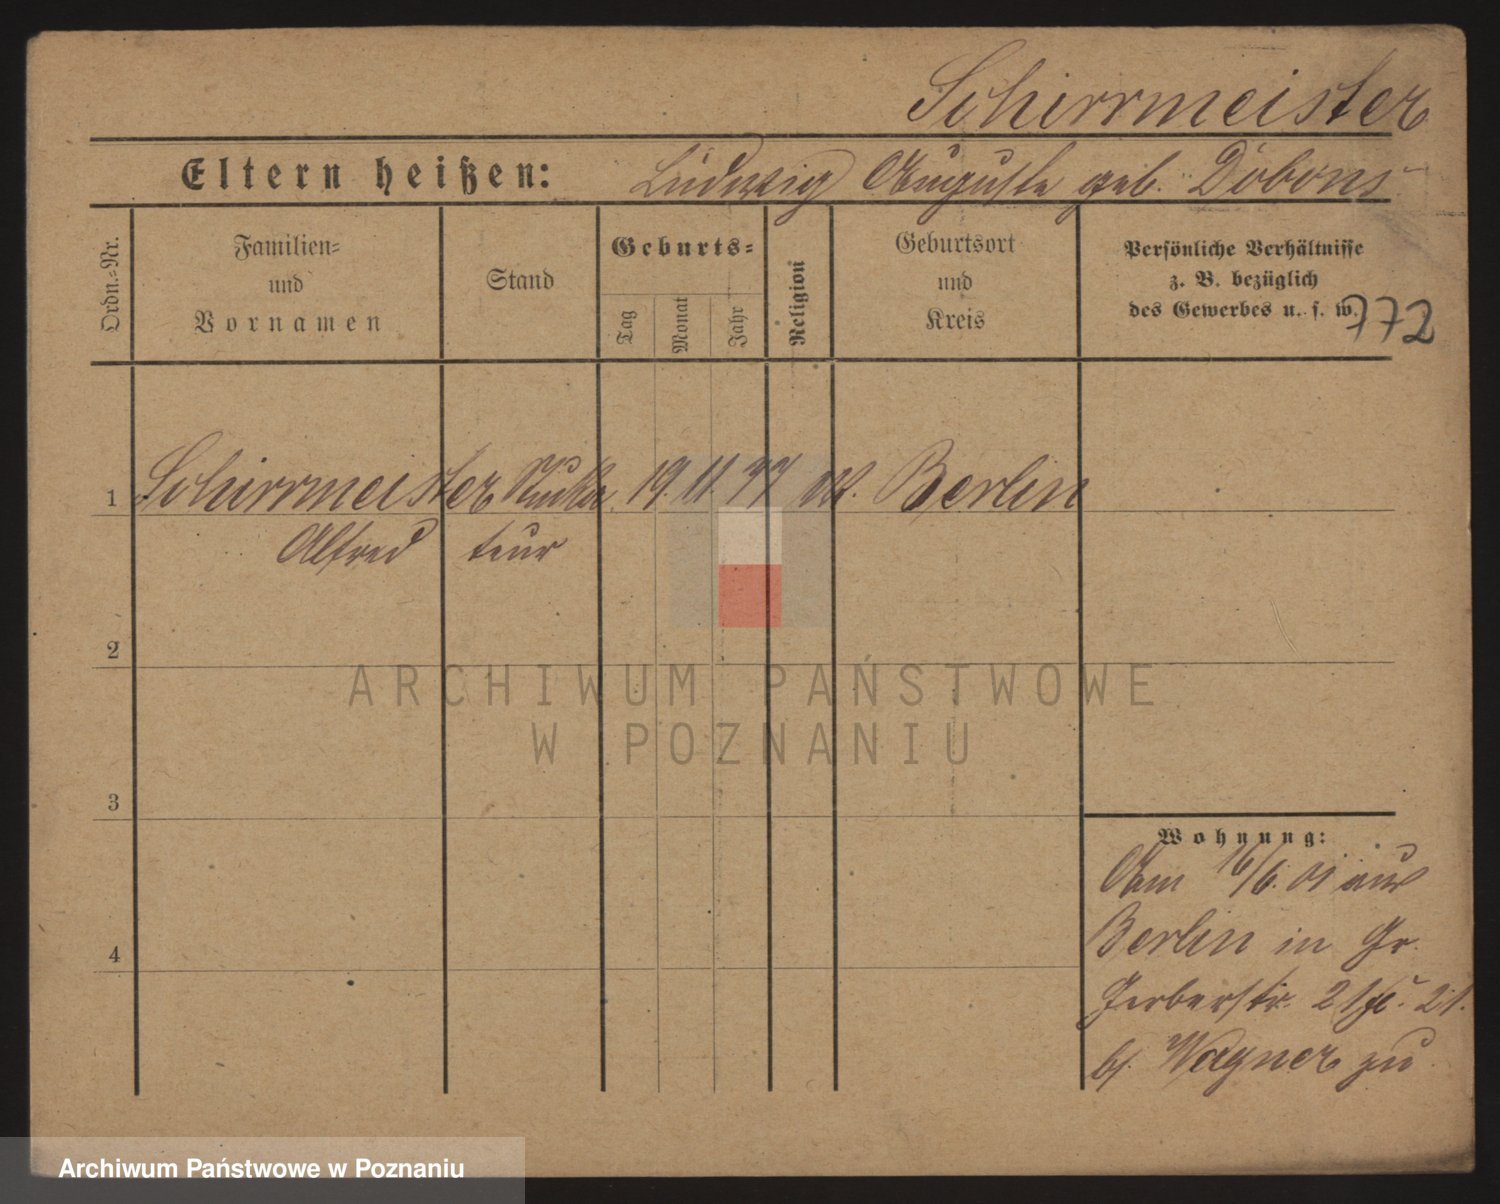 Schirrmeister
Eltern heißen: Ludwig Auguste geb. Dobons
Ordn.-Nr.
Familien-
und
Vornamen
Stand
Geburts-
Tag
Monat
Jahr
Religion
Geburtsort
und
Kreis
Persönliche Verhältnisse
z. B. bezüglich
des Gewerbes u. s. w.
772
1 Schirrmeister 19. 11. 77 Berlin
Alfred teur
2
3
4
Wohnung:
Am 16/6. 01 aus
Berlin in Gr.
Gerberstr. 21
b/ Wagner zu
ARCHIWUM PAŃSTWOWE
W POZNANIU
Archiwum Państwowe w Poznaniu